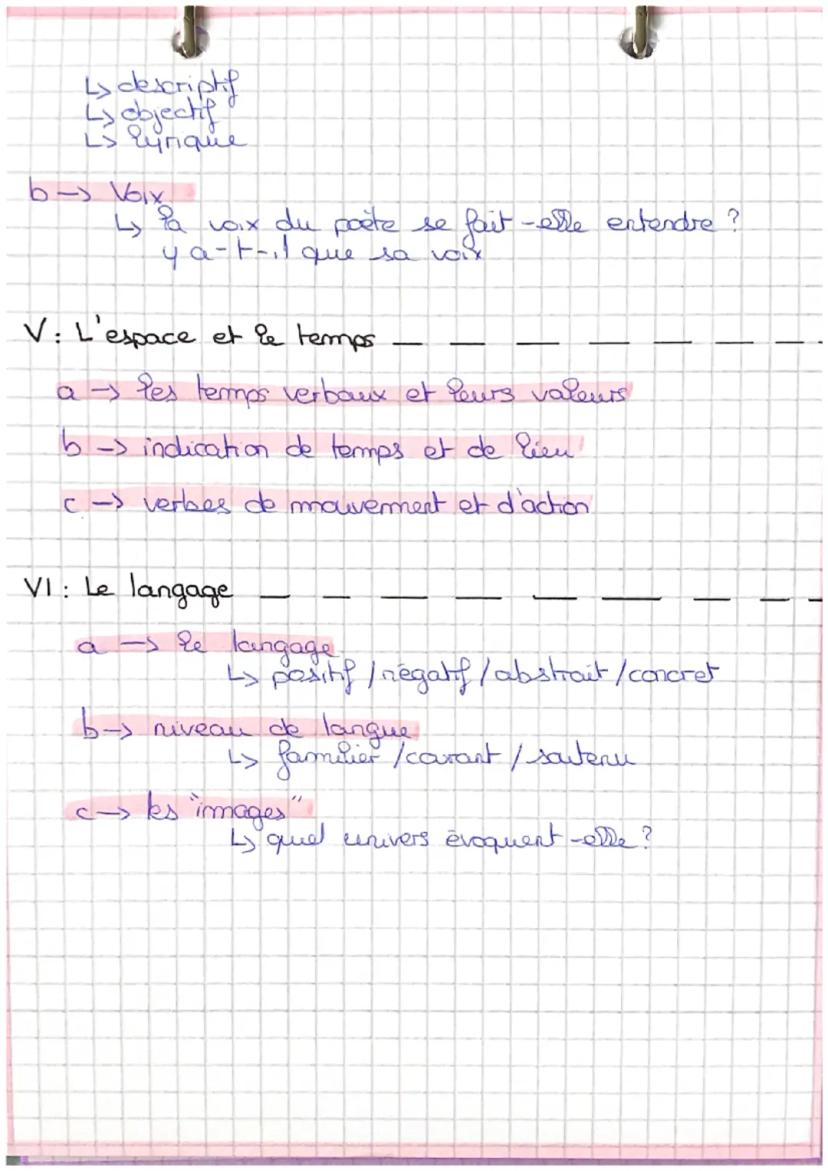 ↳ descriptif
↳ objectif
↳ lyrique
b → Voix
↳ la voix du poète se fait-elle entendre ?
y a-t-il que sa voix
V : L'espace et le temps
a → les temps verbaux et leurs valeurs
b → indication de temps et de lieu
c → verbes de mouvement et d'action
VI : Le langage
a → le langage
↳ positif / négatif / abstrait / concret
b → niveau de langue
↳ familier / courant / soutenu
c → les "images"
↳ quel univers évoquent-elle ?